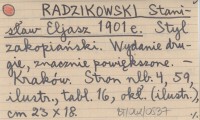 RADZIKOWSKI Stani-
sław Eljasz 1901 r. Styl
zakopiański. Wydanie dru-
gie, znacznie powiększone. —
Kraków. Stron nlb. 4, 59,
ilustr., tabl. 16, okł. (ilustr.),
cm 23 x 18.